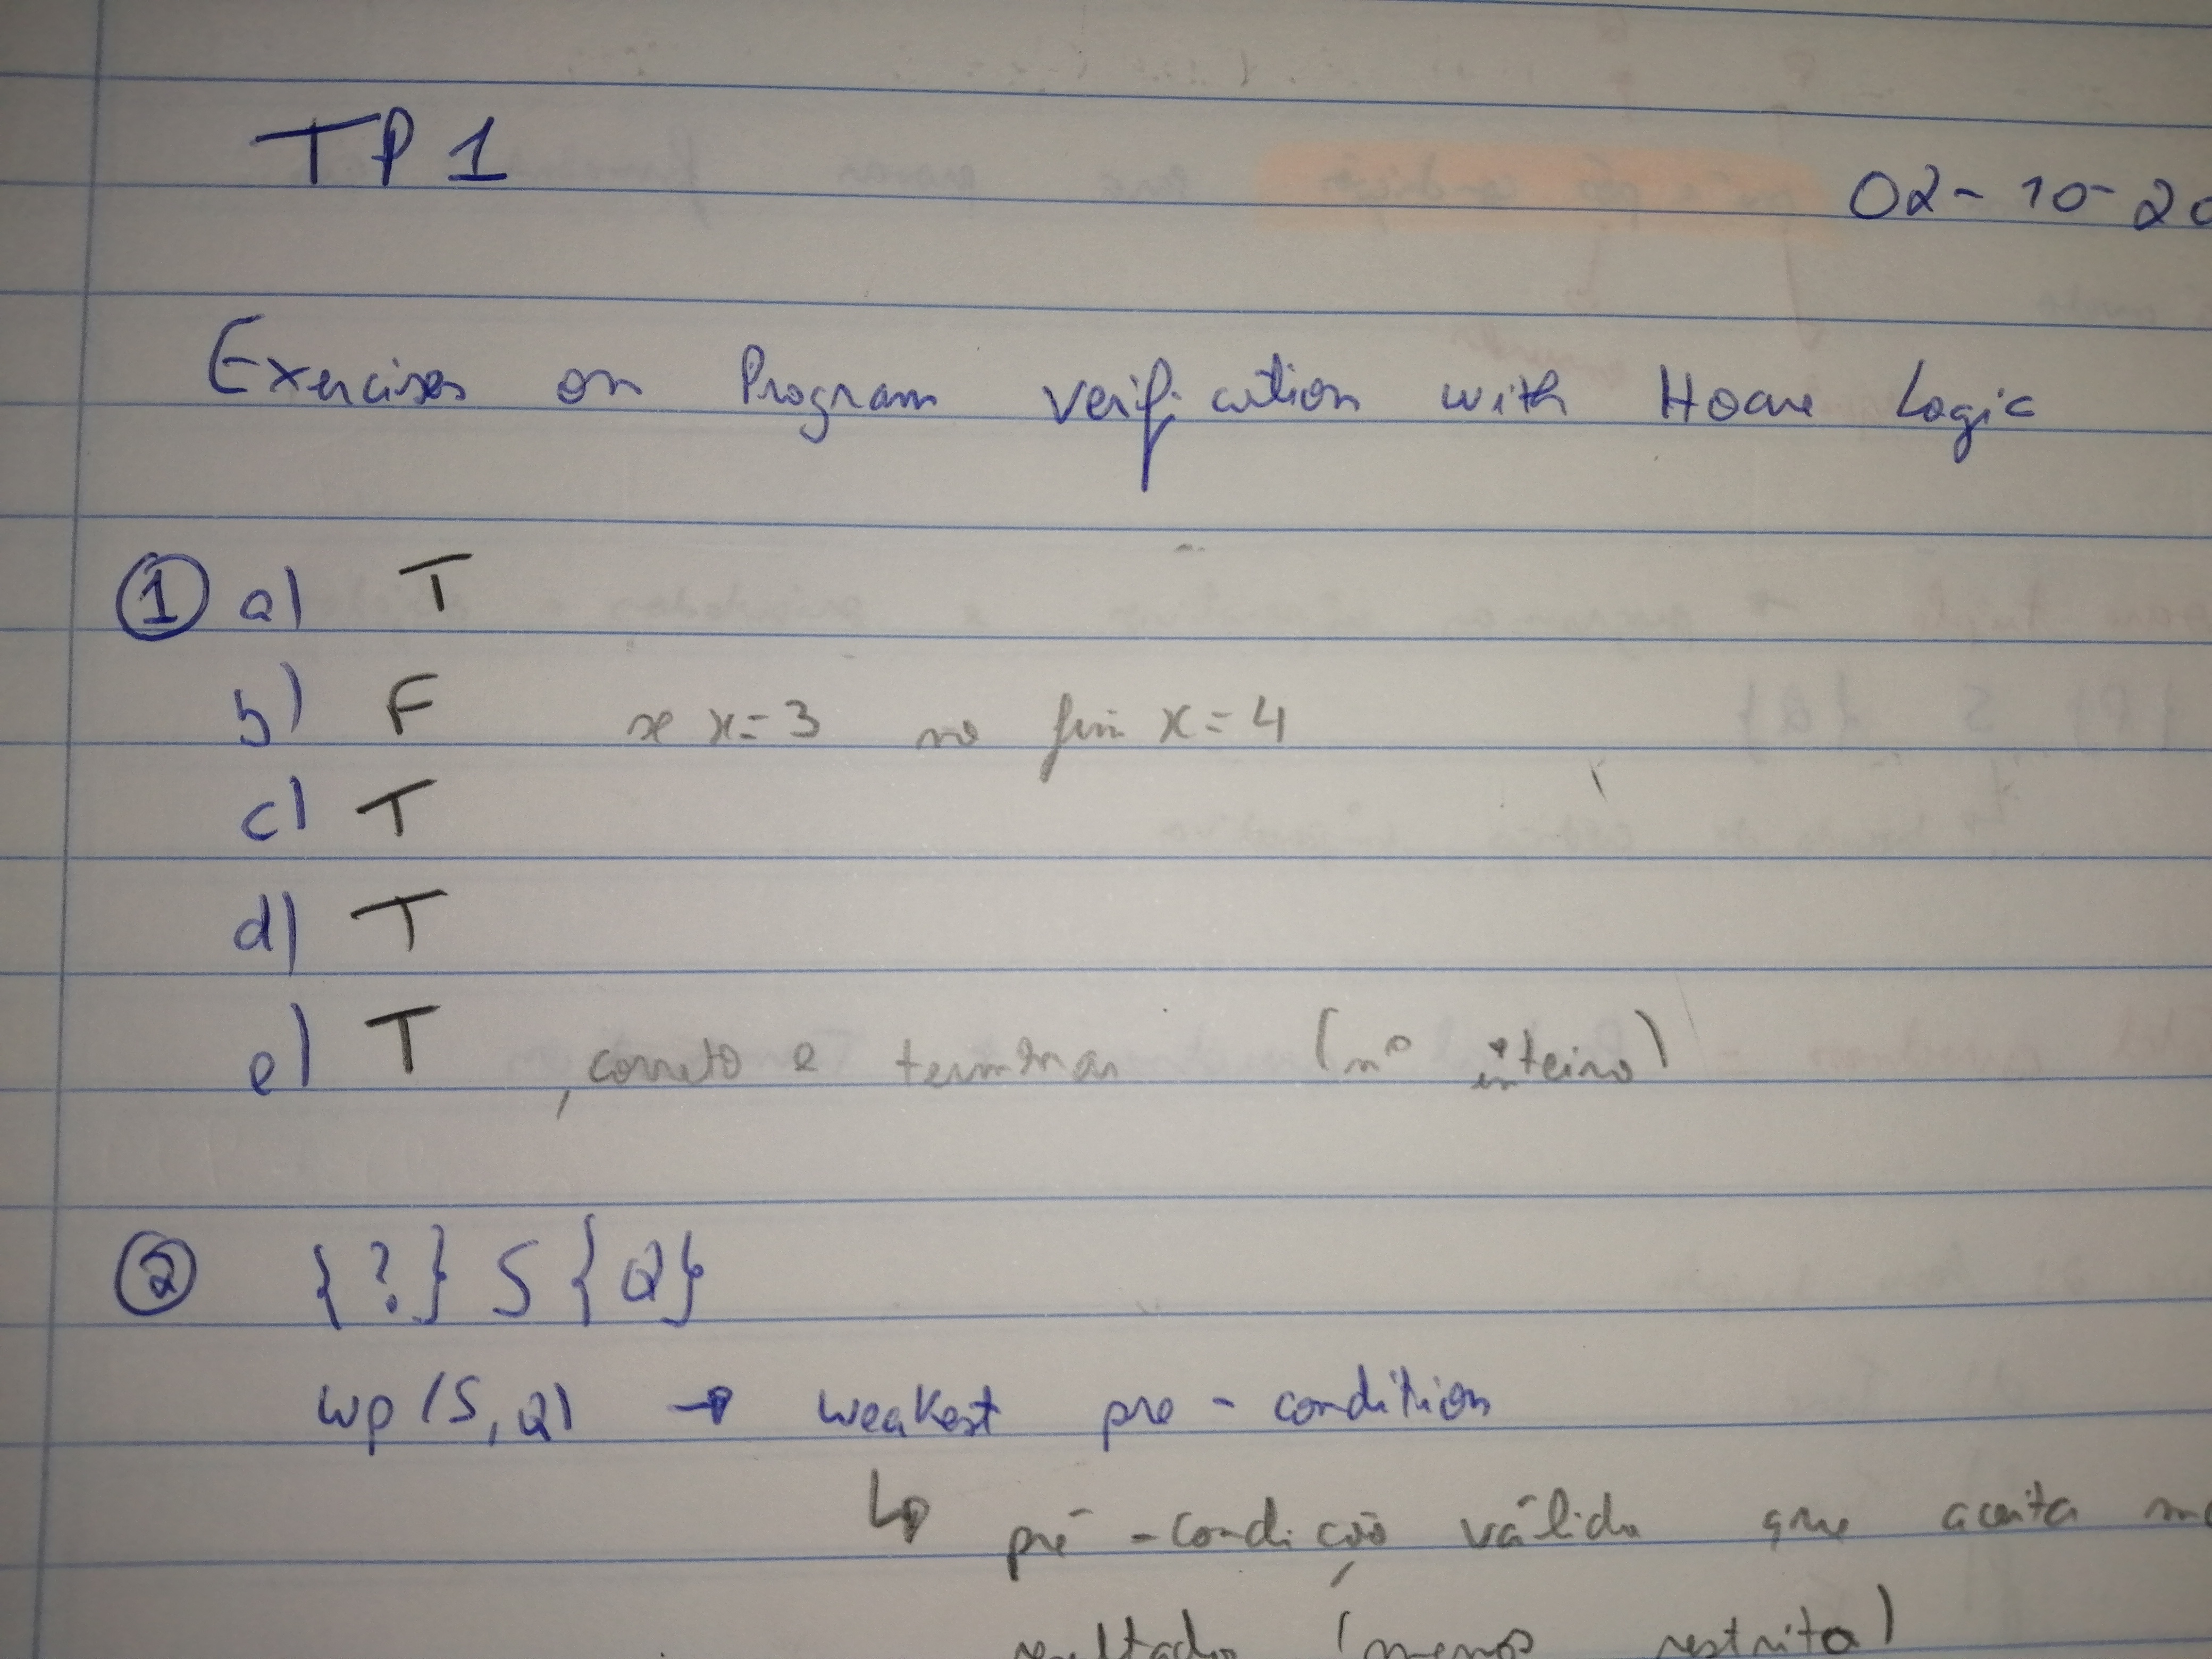 TP 1
02-10-20
Exercises on Program verification with Hoare Logic
① a) T
b) F se x=3 no fim x=4
c) T
d) T
e) T , correto e terminar (nº inteiro)
② {?} S {Q}
wp (S, Q) → weakest pre-condition
↳ pré-condição válida que aceita
resultado (menos restrita)